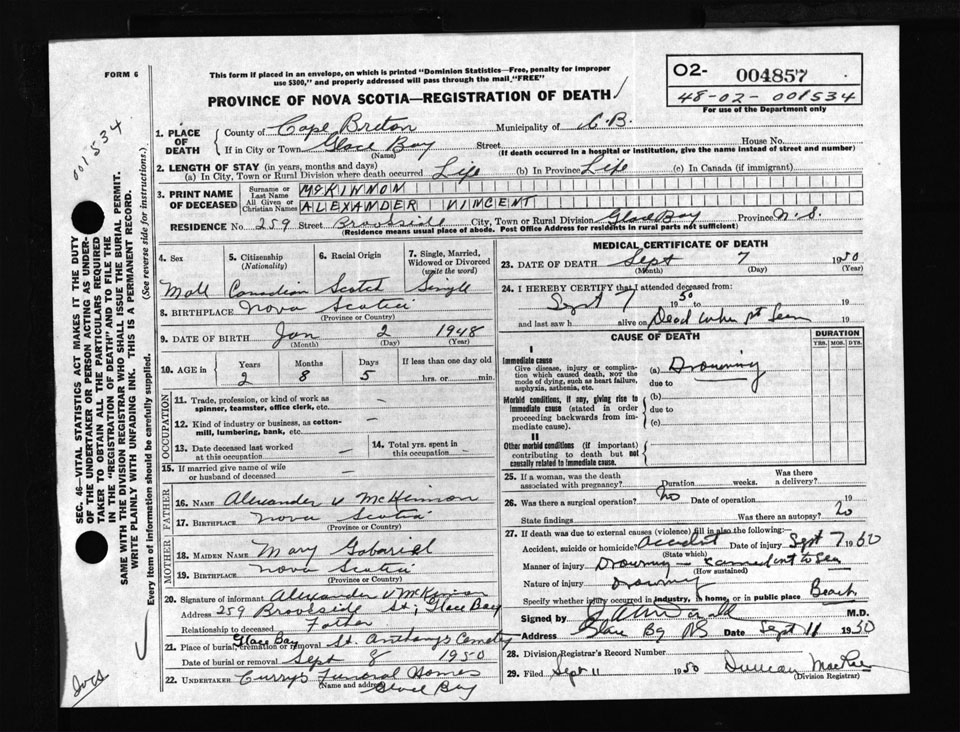 FORM 6
This form if placed in an envelope, on which is printed "Dominion Statistics—Free, penalty for improper
use $300," and properly addressed will pass through the mail "FREE"
PROVINCE OF NOVA SCOTIA—REGISTRATION OF DEATH
O2- 004857
48-02-001534
For use of the Department only
001534
SEC. 46—VITAL STATISTICS ACT MAKES IT THE DUTY
OF THE UNDERTAKER OR PERSON ACTING AS UNDER-
TAKER TO OBTAIN ALL THE PARTICULARS REQUIRED
IN THE "REGISTRATION OF DEATH" AND TO FILE THE
SAME WITH THE DIVISION REGISTRAR WHO SHALL ISSUE THE BURIAL PERMIT.
WRITE PLAINLY WITH UNFADING INK. THIS IS A PERMANENT RECORD.
Every item of information should be carefully supplied. (See reverse side for instructions.)
1. PLACE OF DEATH
County of Cape Breton Municipality of C.B.
If in City or Town Glace Bay Street House No.
(Name) (If death occurred in a hospital or institution, give the name instead of street and number)
2. LENGTH OF STAY (in years, months and days)
(a) In City, Town or Rural Division where death occurred Life (b) In Province Life (c) In Canada (if immigrant)
3. PRINT NAME OF DECEASED
Surname or Last Name McKINNON
All Given or Christian Names ALEXANDER VINCENT
RESIDENCE No. 259 Street Brookside City, Town or Rural Division Glace Bay Province N.S.
(Residence means usual place of abode. Post Office Address for residents in rural parts not sufficient)
4. Sex 5. Citizenship (Nationality) 6. Racial Origin 7. Single, Married, Widowed or Divorced (write the word)
Male Canadian Scotch Single
8. BIRTHPLACE Nova Scotia
(Province or Country)
9. DATE OF BIRTH Jan 2 1948
(Month) (Day) (Year)
10. AGE in Years Months Days If less than one day old
2 8 5 hrs. or min.
OCCUPATION
11. Trade, profession, or kind of work as
spinner, teamster, office clerk, etc. —
12. Kind of industry or business, as cotton-
mill, lumbering, bank, etc. —
13. Date deceased last worked at this occupation — 14. Total yrs. spent in this occupation —
15. If married give name of wife
or husband of deceased —
FATHER
16. NAME Alexander V McKinnon
17. BIRTHPLACE Nova Scotia
(Province or Country)
MOTHER
18. MAIDEN NAME Mary Gabariel
19. BIRTHPLACE Nova Scotia
(Province or Country)
20. Signature of informant Alexander V McKinnon
Address 259 Brookside St; Glace Bay
Relationship to deceased Father
21. Place of burial, cremation or removal Glace Bay St. Anthonys Cemetery
Date of burial or removal Sept 8 1950
22. UNDERTAKER Currys Funeral Homes
(Name and address) Glace Bay
MEDICAL CERTIFICATE OF DEATH
23. DATE OF DEATH Sept 7 1950
(Month) (Day) (Year)
24. I HEREBY CERTIFY that I attended deceased from:
Sept 7 1950 to 19
and last saw h alive on Dead when 1st seen 19
CAUSE OF DEATH
DURATION
YRS. MOS. DYS.
I
Immediate cause
Give disease, injury or complica-
tion which caused death, NOT the
mode of dying, such as heart failure,
asphyxia, asthenia, etc.
(a) Drowning
due to
Morbid conditions, if any, giving rise to
immediate cause (stated in order
proceeding backwards from im-
mediate cause).
(b)
due to
(c)
II
Other morbid conditions (if important)
contributing to death but not
causally related to immediate cause.
25. If a woman, was the death associated with pregnancy? Duration weeks. Was there a delivery?
26. Was there a surgical operation? No Date of operation 19
State findings Was there an autopsy? No
27. If death was due to external causes (violence) fill in also the following:
Accident, suicide or homicide? Accident Date of injury Sept 7 1950
(State which)
Manner of injury Drowning — carried out to sea
(How sustained)
Nature of injury Drowning
Specify whether injury occurred in industry, in home, or in public place Beach
Signed by M.D.
Address Glace Bay NS Date Sept 11 1950
28. Division Registrar's Record Number
29. Filed Sept 11 1950 Duncan
(Division Registrar)